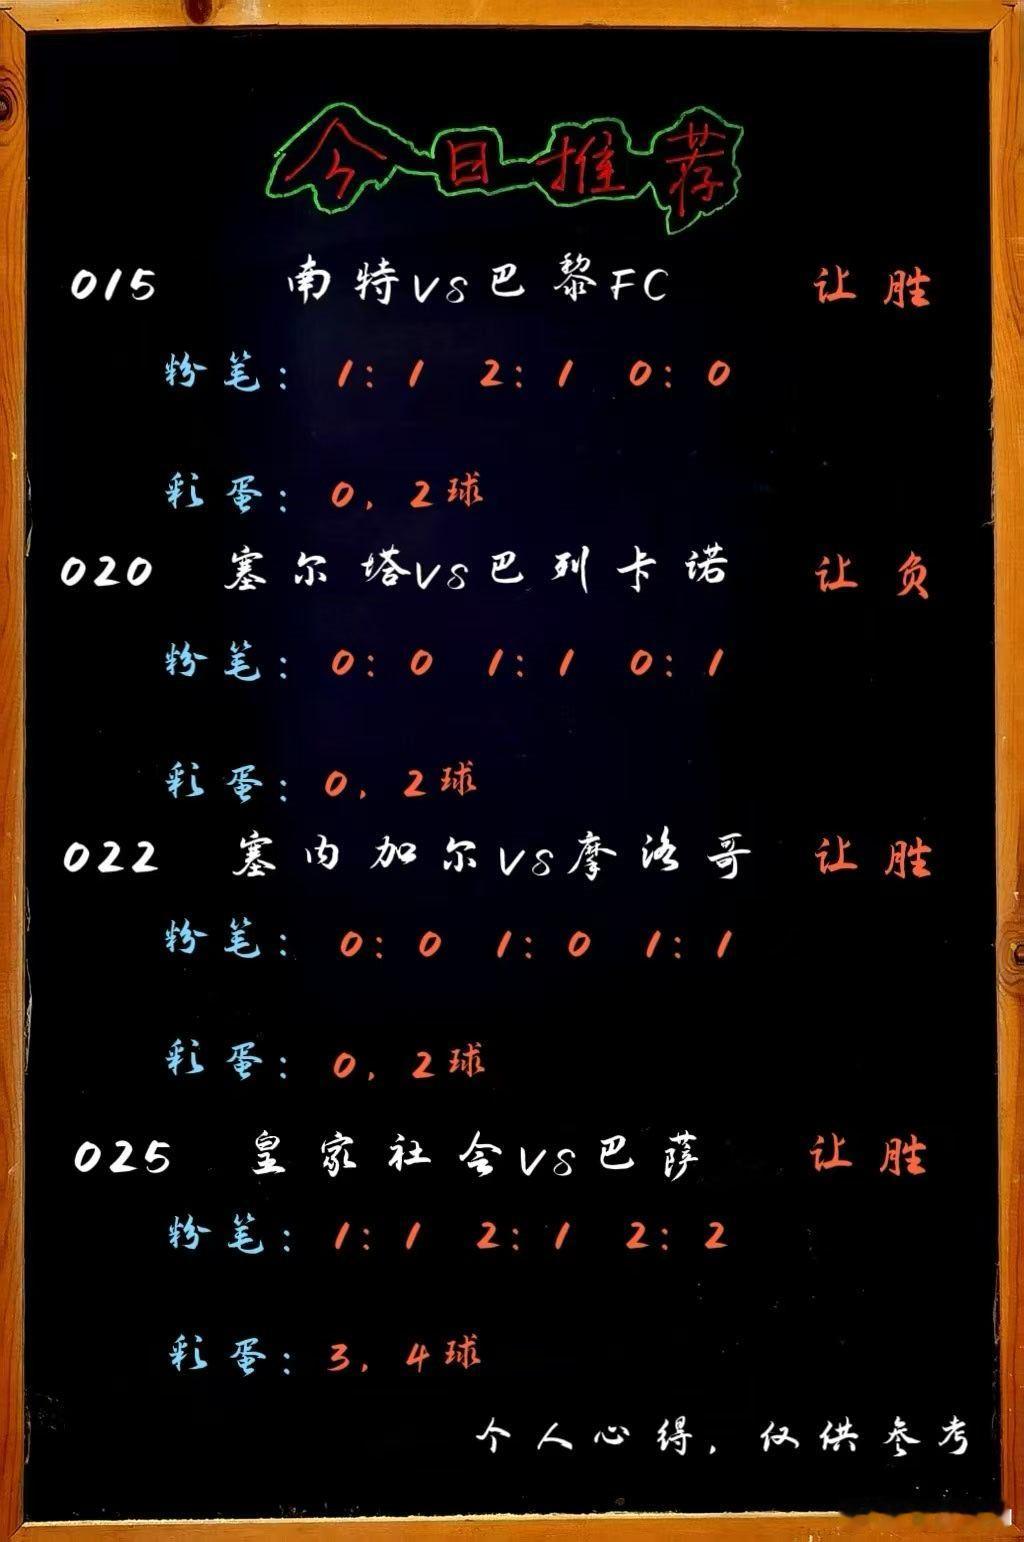 今日推荐
015 南特vs巴黎FC 让胜
粉笔: 1:1 2:1 0:0
彩蛋: 0, 2球
020 塞尔塔vs巴列卡诺 让负
粉笔: 0:0 1:1 0:1
彩蛋: 0, 2球
022 塞内加尔vs摩洛哥 让胜
粉笔: 0:0 1:0 1:1
彩蛋: 0, 2球
025 皇家社会vs巴萨 让胜
粉笔: 1:1 2:1 2:2
彩蛋: 3, 4球
个人心得, 仅供参考